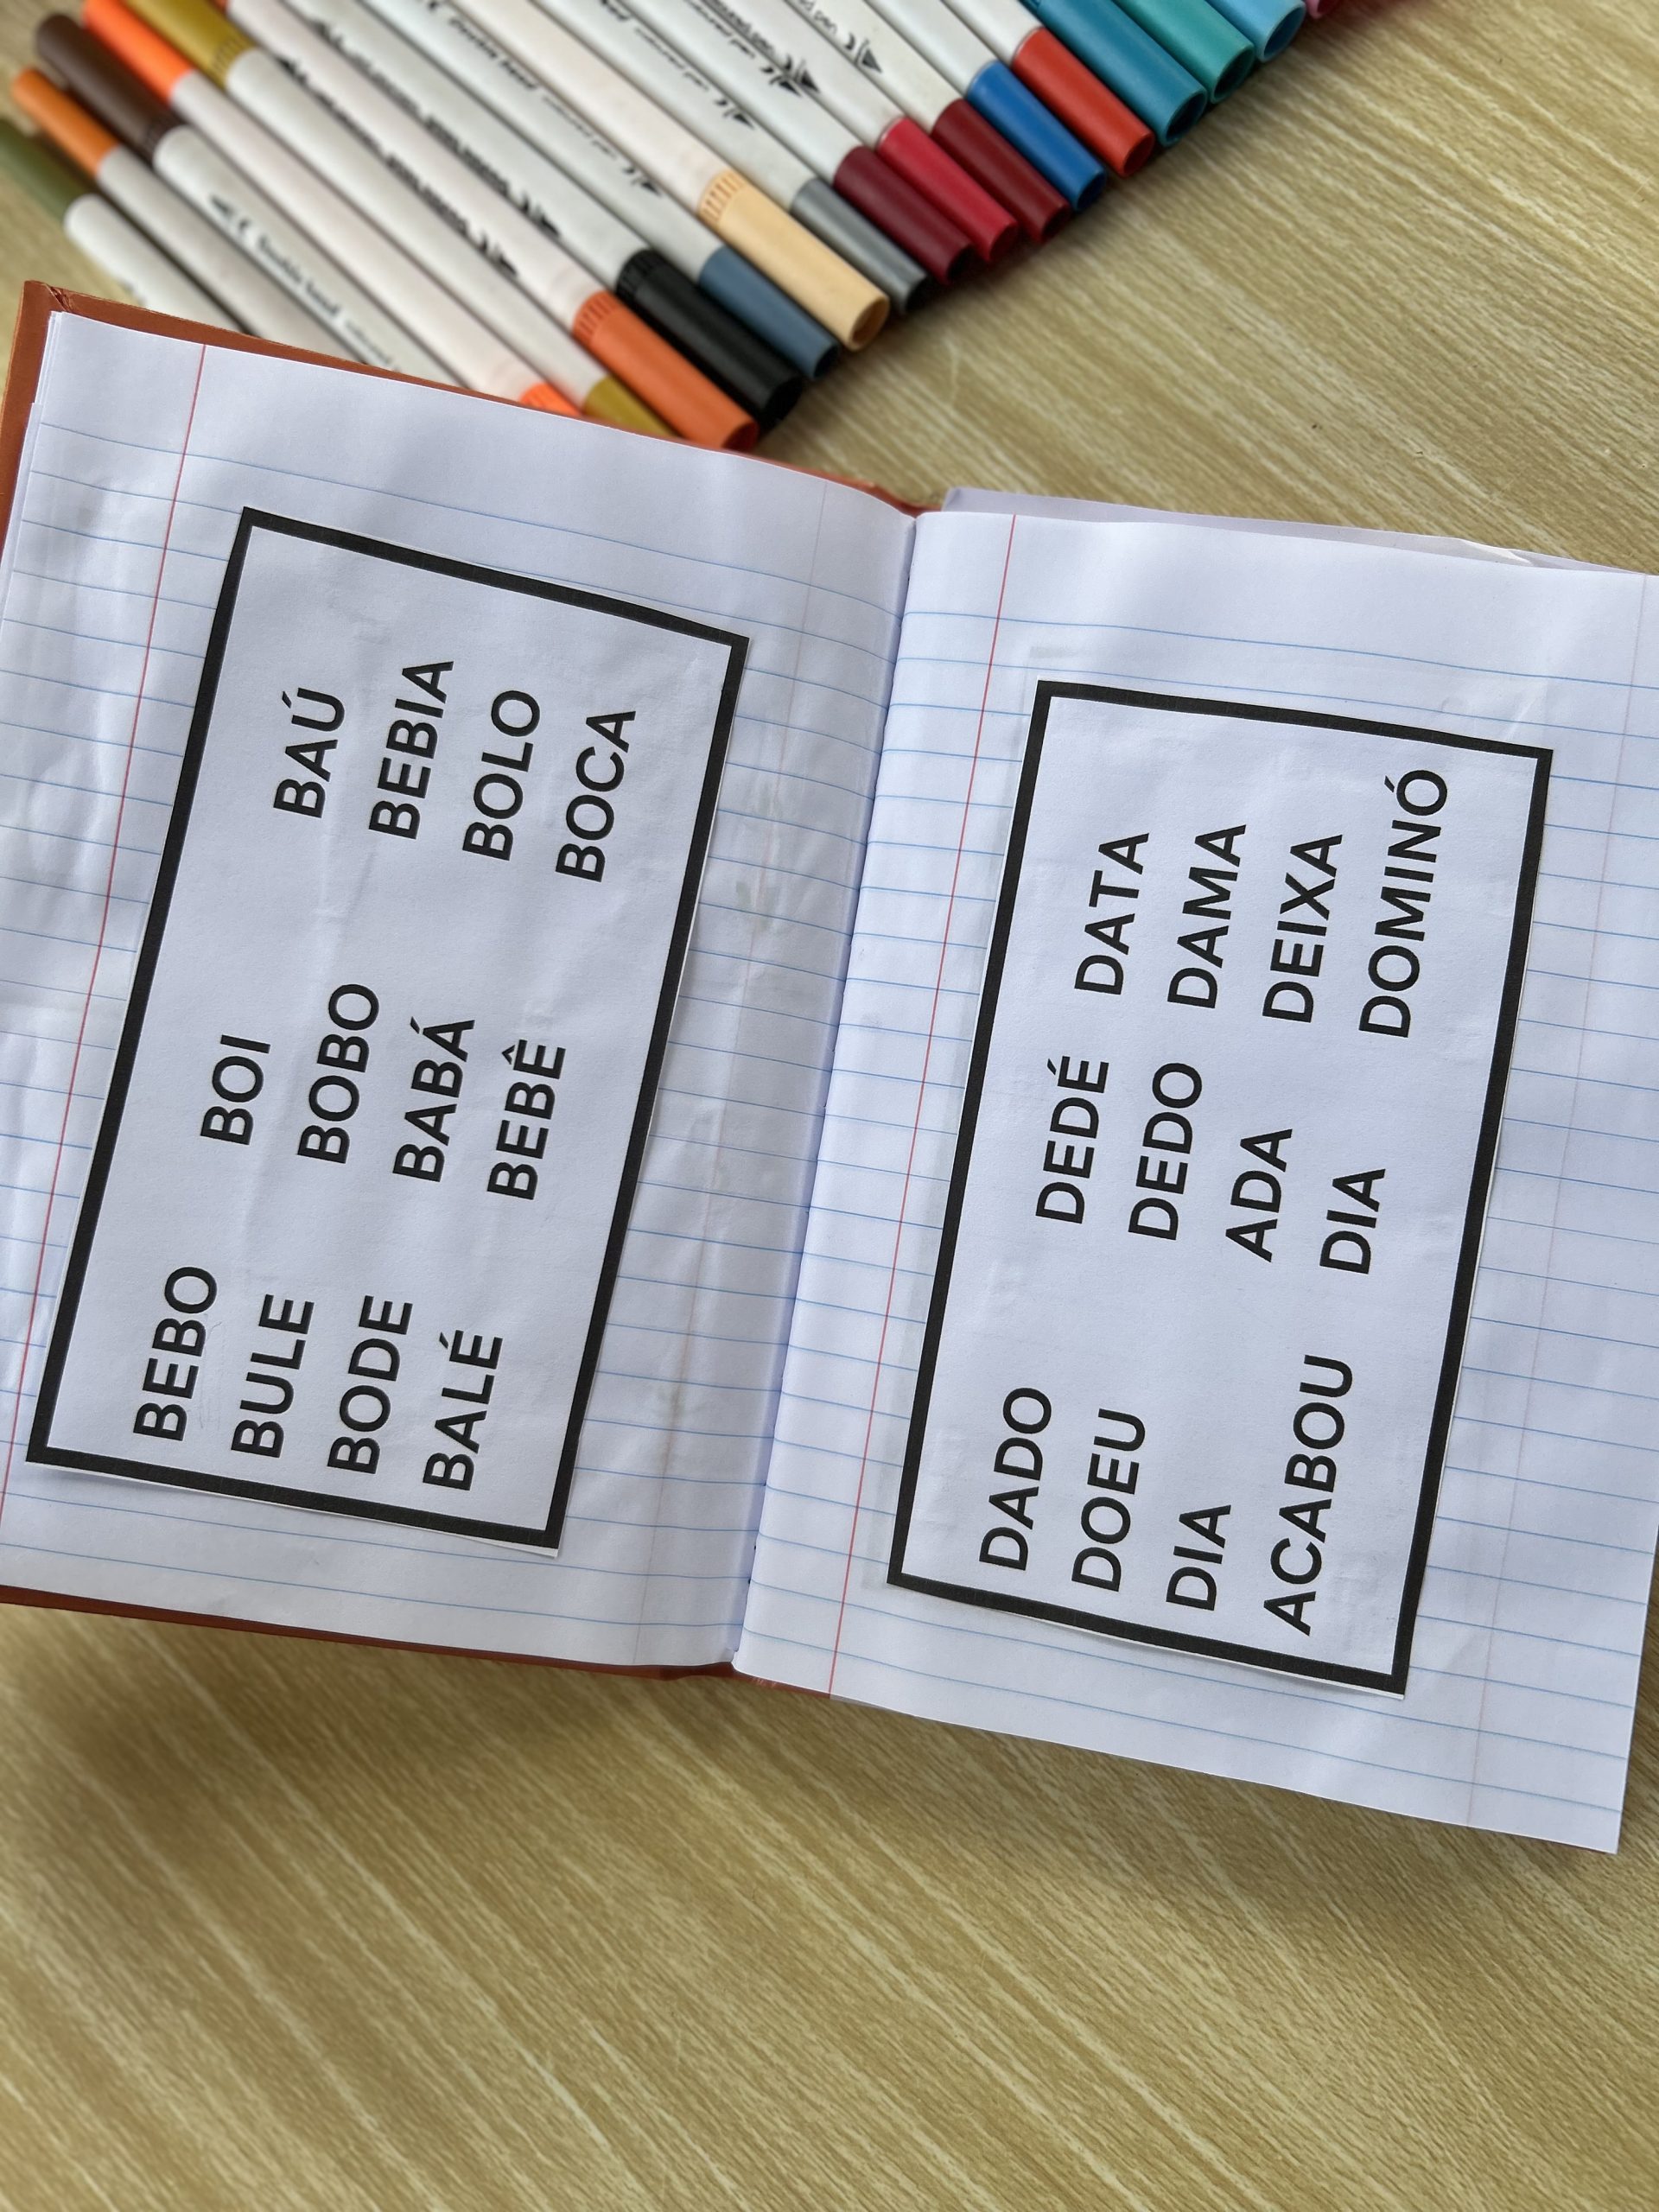 BEBO BOI BAÚ
BULE BOBO BEBIA
BODE BABÁ BOLO
BALÉ BEBÊ BOCA
DADO DEDÉ DATA
DOEU DEDO DAMA
DIA ADA DEIXA
ACABOU DIA DOMINÓ